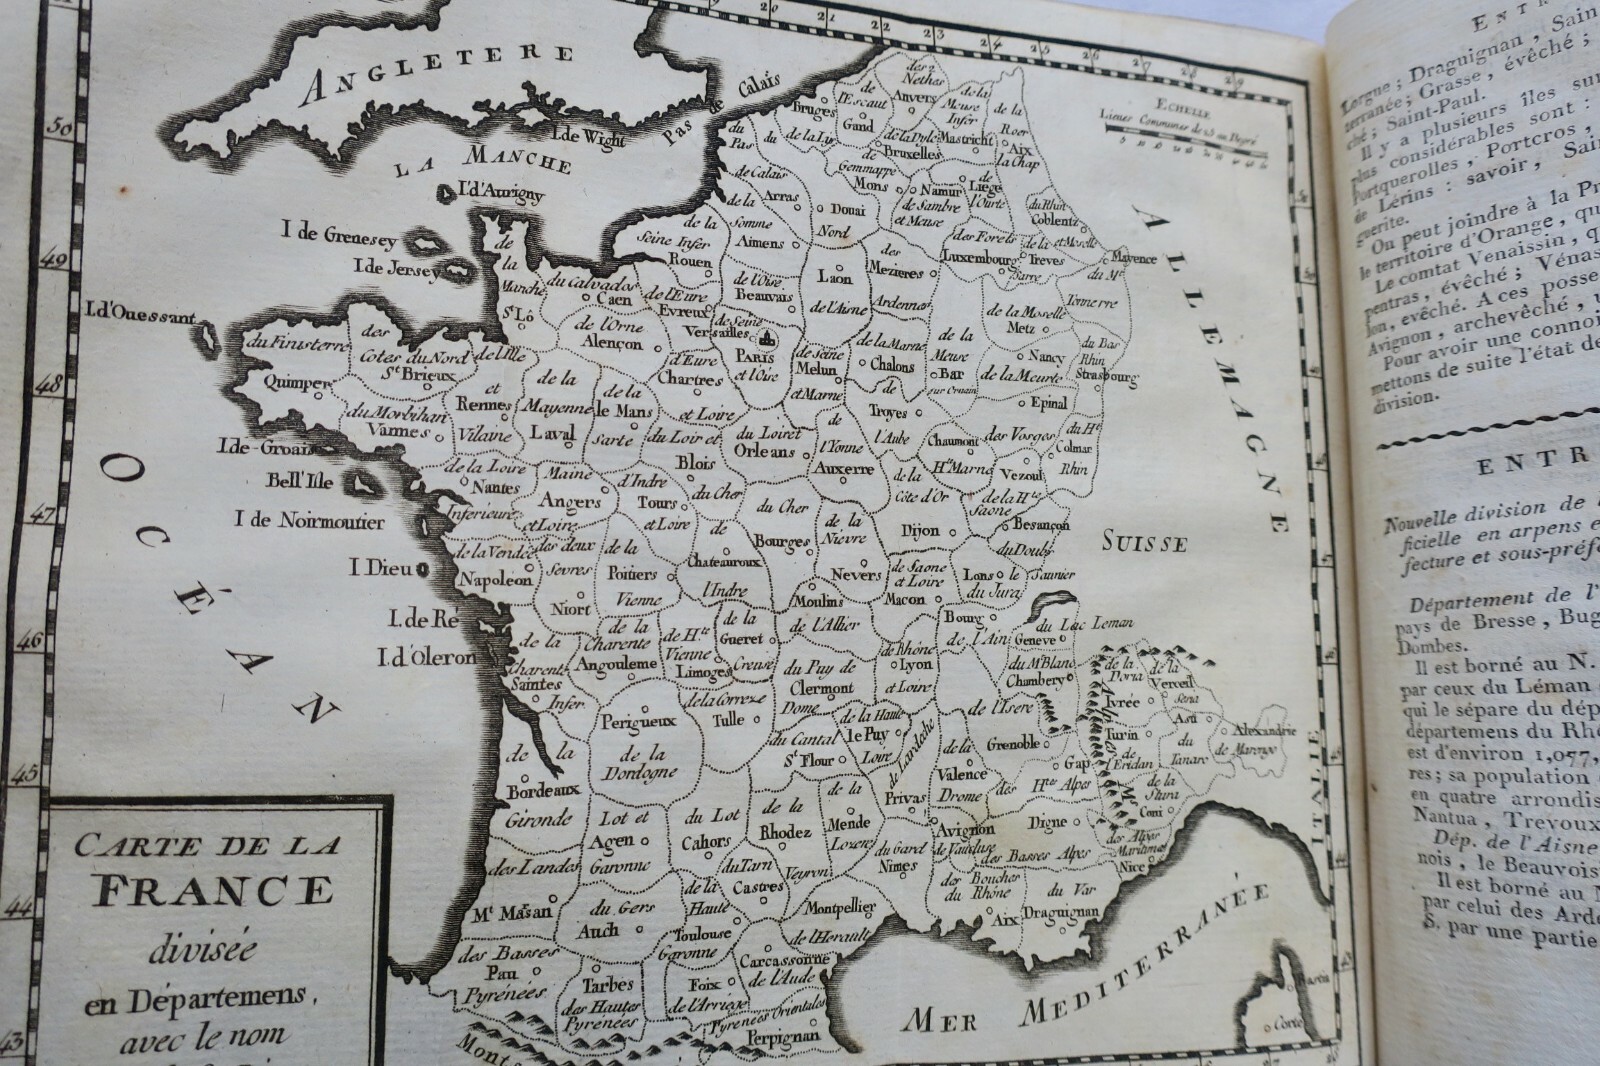 ANGLETERE
I.de Wight
Pas de Calais
LA MANCHE
I.d'Aurigny
I de Grenesey
I.de Jersey
I.d'Ouessant
ECHELLE
Lieues Communes de 25 au Degré
des 2 Nethes
Anvers
de l'Escaut
Gand
Bruges
de la Lys
de la Dyle
Bruxelles
de la Meuse Infer
Mastricht
de la Roer
Aix la Chap
du Pas de Calais
Arras
de Gemmappe
Mons
Namur
de Sambre et Meuse
Liege
de l'Ourte
du Rhin et Moselle
Coblentz
Douai
Nord
de la Somme
Amiens
de la Seine Infer
Rouen
des Forets
Luxembourg
de la Sarre
Treves
Mayence
du Mt Tonnerre
des Ardennes
Mezieres
Laon
de l'Aisne
de l'Oise
Beauvais
de la Manche
St Lô
du Calvados
Caen
de l'Eure
Evreux
de l'Orne
Alençon
de Seine et Oise
Versailles
PARIS
de Seine et Marne
Melun
de la Marne
Chalons
de la Meuse
Bar sur Ornain
de la Moselle
Metz
Nancy
de la Meurte
du Bas Rhin
Strasbourg
ALLEMAGNE
du Finusterre
Quimper
des Cotes du Nord
St Brieux
de l'Ille et Vilaine
Rennes
du Morbihan
Vannes
de la Mayenne
Laval
de la Sarte
le Mans
d'Eure et Loire
Chartres
du Loir et Cher
Blois
du Loiret
Orleans
de l'Yonne
Auxerre
de l'Aube
Troyes
Chaumont
Hte Marne
des Vosges
Epinal
du Ht Rhin
Colmar
Vezoul
de la Hte Saone
I.de-Groais
Bell'Isle
I de Noirmoutier
I Dieu
I.de Ré
I.d'Oleron
OCÉAN
de la Loire Inferieure
Nantes
Maine et Loire
Angers
d'Indre et Loire
Tours
du Cher
Bourges
de la Nievre
Nevers
de la Côte d'Or
Dijon
Besançon
du Doubs
SUISSE
de la Vendée
Napoléon
des deux Sevres
Niort
de la Vienne
Poitiers
de l'Indre
Chateauroux
Moulins
de l'Allier
de Saone et Loire
Macon
Lons le Saunier
du Jura
Bourg
de l'Ain
du Lac Leman
Geneve
de la Charente Infer
Saintes
de la Charente
Angouleme
de Hte Vienne
Limoges
de la Creuse
Gueret
du Puy de Dome
Clermont
de Rhône et Loire
Lyon
du Mt Blanc
Chambery
de la Doria
Ivrée
de la Sesia
Verceil
de la Correze
Tulle
Perigueux
de la Dordogne
du Cantal
St Flour
de la Haute Loire
le Puy
de l'Ardeche
Privas
de l'Isere
Grenoble
de la Drome
Valence
Gap
des Htes Alpes
Turin
de l'Eridan
Asti
du Tanaro
Alexandrie
de Marengo
de la Stura
Coni
ITALIE
de la Gironde
Bordeaux
Lot et Garonne
Agen
du Lot
Cahors
de la Veyron
Rhodez
de la Lozere
Mende
du Gard
Nimes
Avignon
de Vaucluse
Digne
des Basses Alpes
des Alpes Maritimes
Nice
des Landes
Mt Marsan
du Gers
Auch
de la Haute Garonne
Toulouse
du Tarn
Castres
Montpellier
de l'Herault
des Bouches du Rhône
Aix
du Var
Draguignan
des Basses Pyrénées
Pau
Tarbes
des Hautes Pyrénées
Foix
de l'Arriége
Carcassonne
de l'Aude
Pyrenées Orientales
Perpignan
MER MEDITERRANÉE
Corte
CARTE DE LA
FRANCE
divisée
en Départemens,
avec le nom
ENTR
Lorgue ; Draguignan , Sain
terranée ; Grasse, évêché ;
ché ; Saint-Paul.
Il y a plusieurs îles sur
plus considérables sont :
Portquerolles , Portcros ,
de Lérins : savoir, Sai
guerite.
On peut joindre à la Pr
le territoire d'Orange, qu
Le comtat Venaissin, q
pentras, évêché ; Vénas
lon, evêché. A ces posse
Avignon, archevêché,
Pour avoir une connoi
mettons de suite l'état de
division.
ENTR
Nouvelle division de
ficielle en arpens e
fecture et sous-préf
Département de l'
pays de Bresse, Bug
Dombes.
Il est borné au N.
par ceux du Léman
qui le sépare du dép
départemens du Rhô
est d'environ 1,077,
res ; sa population
en quatre arrondis
Nantua, Trevoux
Dép. de l'Aisne
nois, le Beauvois
Il est borné au N
par celui des Arde
S. par une partie